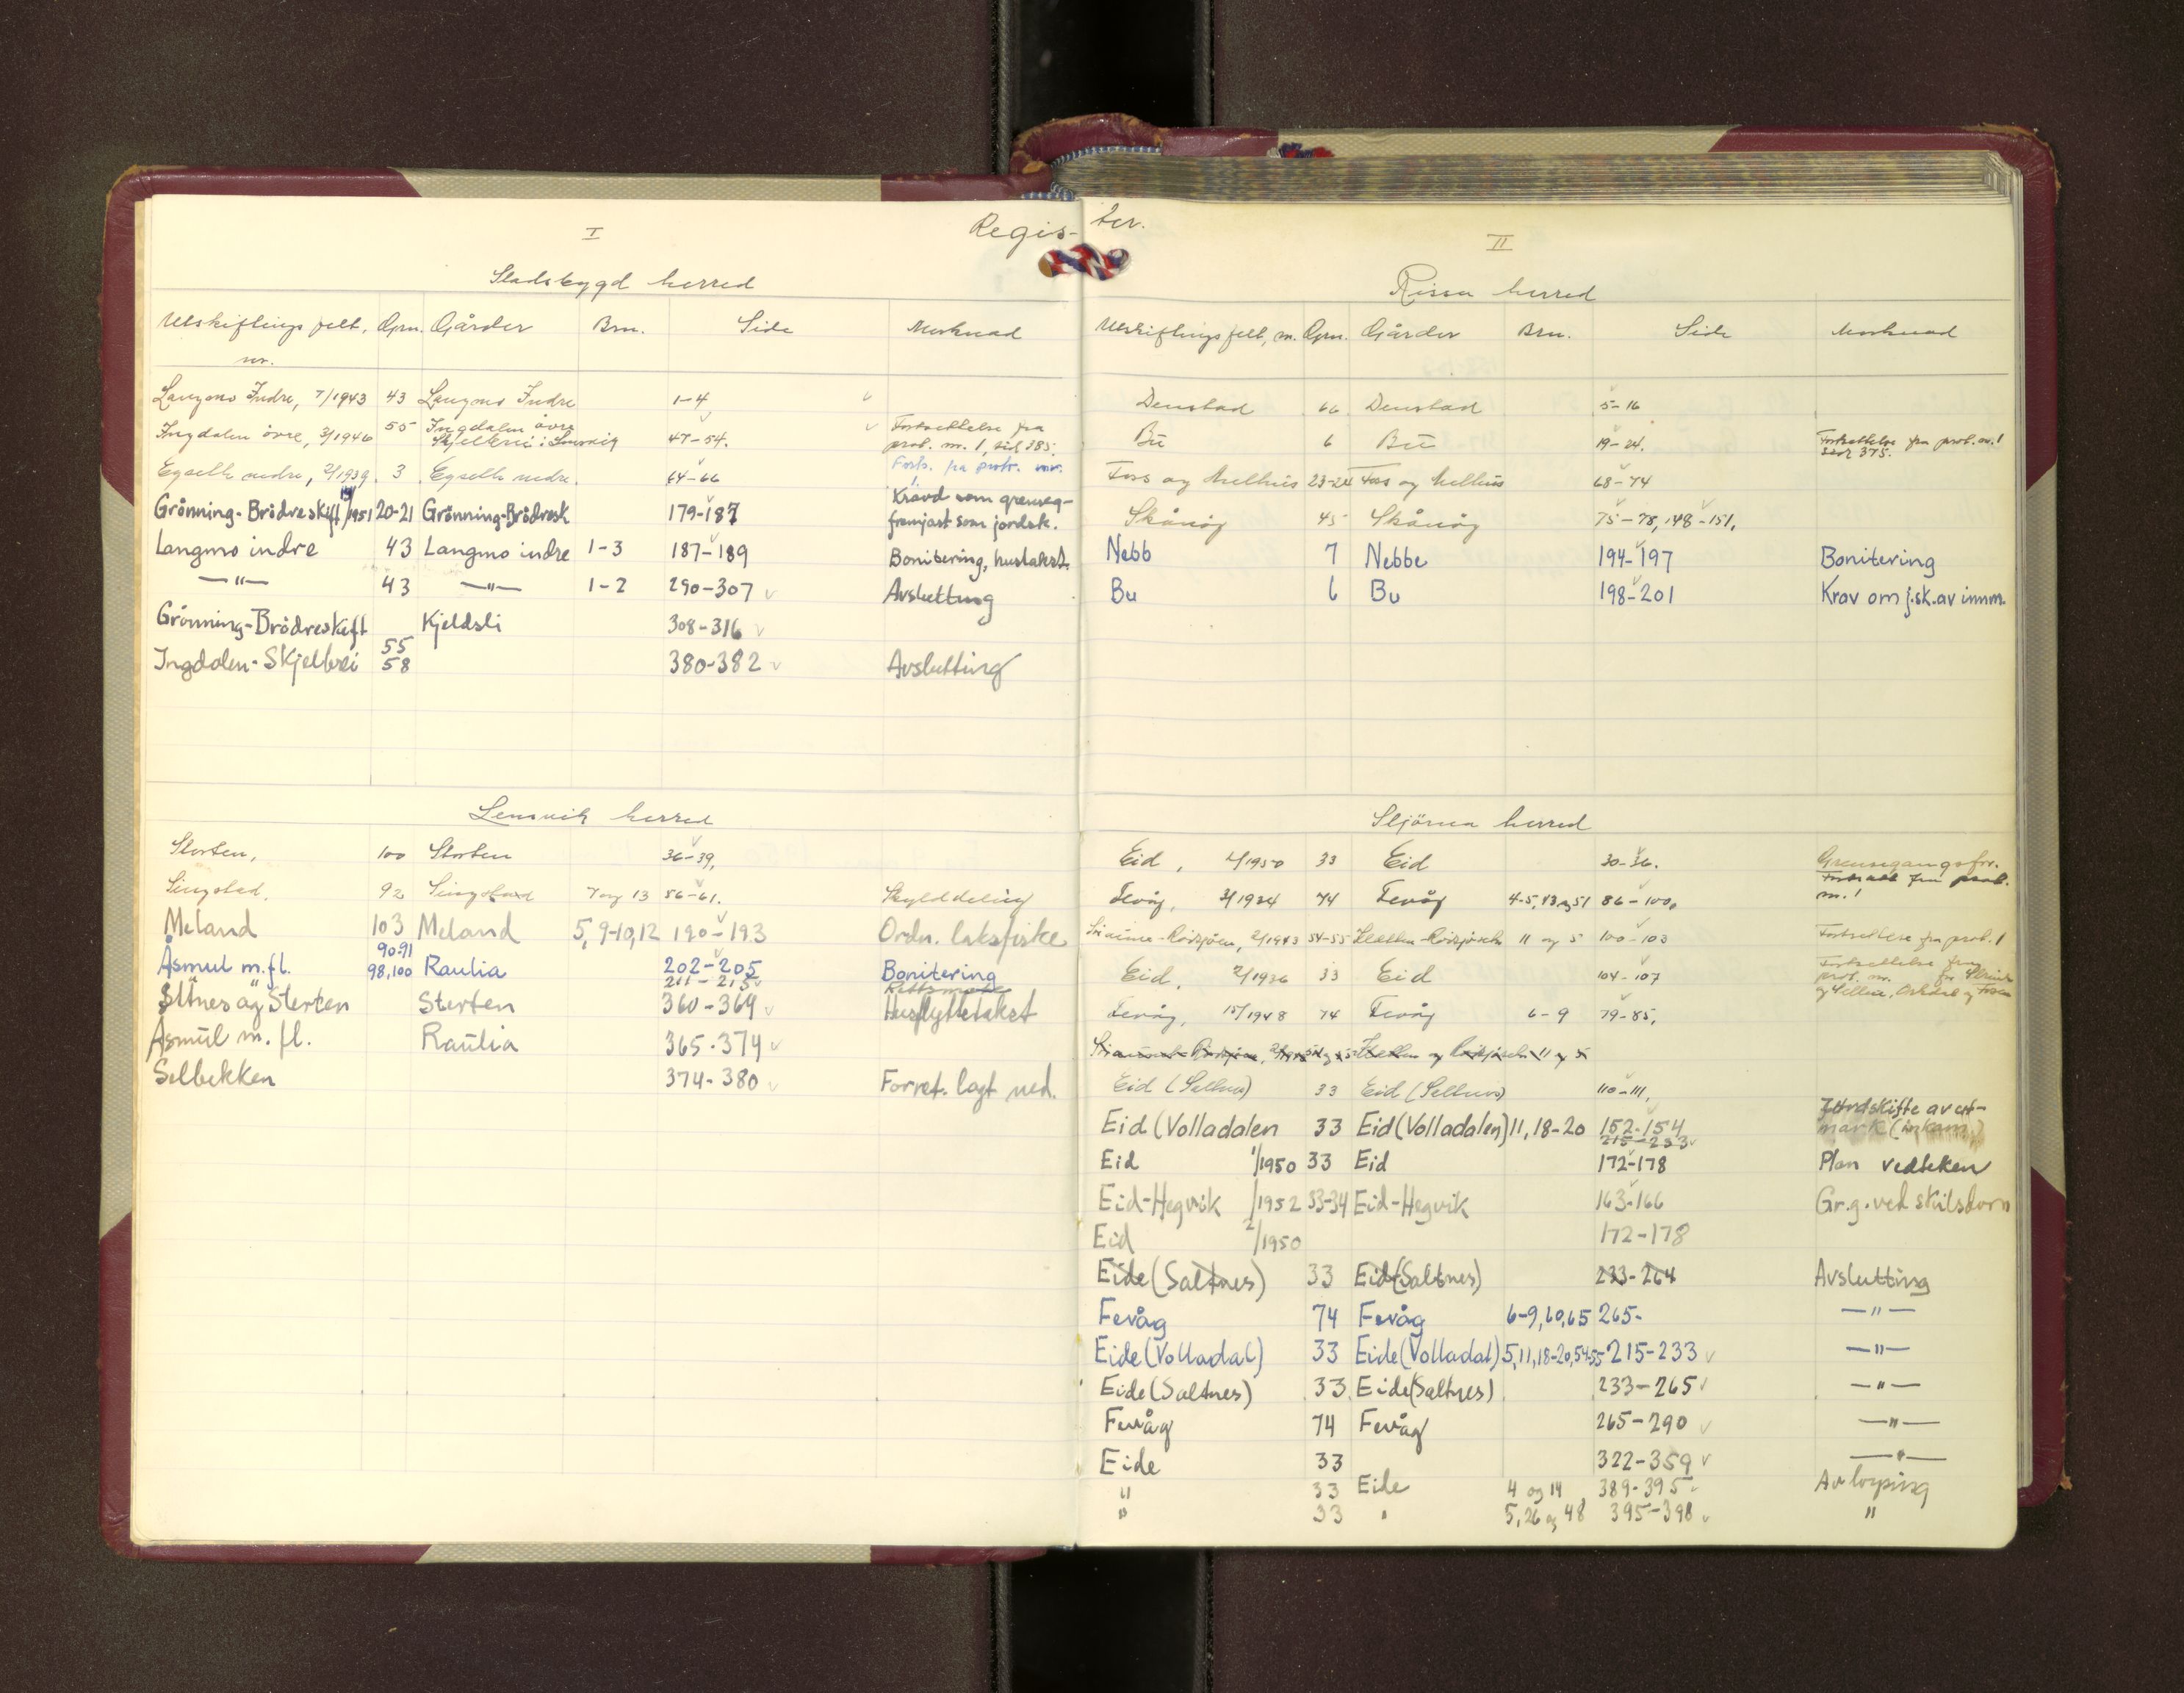 Regis- ter.
I
Stadsbygd herred
Utskiftings felt, nr. Gnr. Gårder Brn. Side Merknad
Langmo Indre, 7/1943 43 Langmo Indre 1-4
Ingdalen övre, 3/1946 55 Ingdalen övre Skjelbrei i Lensvig 47-54. Fortsettelse fra prot. nr. 1, sid 385.
nedre, 2/1939. 3 nedre. 64-66 Forts. fra protr. nr.
Grönning-Brödreskift 1951 20-21 Grönning-Brödresk 179-187 Kravd som grenseg- fremjast som jordsk.
Langmo indre 43 Langmo indre 1-3 187-189 Bonitering, hustakst.
—"— 43 —"— 1-2 290-307 Avslutting
Grönning-Brödreskift Kjeldsli 308-316
Ingdalen-Skjelbrei 55 58 380-382 Avslutting
Lensvik herred
Sterten, 100 Sterten 36-39,
Singstad, 92 Singstad 7 og 13 56-61. Skylddeling
Meland 103 Meland 5, 9-10, 12 190-193 Ordn. laksfiske
Åsmul m.fl. 90-91 98,100 Raulia 202-205 Bonitering
211-215 Rettsmøte
Sltnes og Sterten Sterten 360-369 Husflyttetakst
Åsmul m. fl. Raulia 365-374
Selbekken 374-380 Forret. lagt ned.
II
Rissa herred
Utskiftings felt, nr. Gnr. Gårder Brn. Side Merknad
Denstad 66 Denstad 5-16
Bu 6 Bu 19-24. Fortsettelse fra prot. nr. 1 sid 375.
Foss og Melhus 23-24 Foss og Melhus 68-74
Skånög 45 Skånög 75-78, 148-151,
Nebb 7 Nebbe 194-197 Bonitering
Bu 6 Bu 198-201 Krav om j.sk. av innm.
Stjörna herred
Eid, 1/1950 33 Eid 30-36. Grensegangsfor.
Fevåg, 3/1934 74 Fevåg 4-5, 43 og 51 86-100, Fortsatt fra prot. nr. 1
2/1943 54-55 11 og 5 100-103 Fortsettelse fra prot. 1
Eid, 2/1936 33 Eid 104-107 Fortsettelse fra prot. nr.
Fevåg, 15/1948 74 Fevåg 6-9 79-85,
11 og 5
Eid (Selnes) 33 Eid (Selnes) 110-111,
Eid (Volladalen 33 Eid (Volladalen) 11, 18-20 152-154 215-233 Jordskifte av ut- mark (innkam.)
Eid 1/1950 33 Eid 172-178 Plan vedteken
Eid-Hegvik /1952 33-34 Eid-Hegvik 163-166 Gr.g. ved skilsdom
Eid 2/1950 172-178
Eide (Saltnes) 33 Eid (Saltnes) 233-264 Avslutting
Fevåg 74 Fevåg 6-9, 60, 65 265- —"—
Eide (Volladal) 33 Eide (Volladal) 5, 11, 18-20, 54-55 215-233 —"—
Eide (Saltnes) 33 Eide (Saltnes) 233-265 —"—
Fevåg 74 Fevåg 265-290 —"—
Eide 33 322-359 —"—
" 33 Eide 4 og 14 389-395 Avløysing
" 33 " 5, 26 og 48 395-398 "